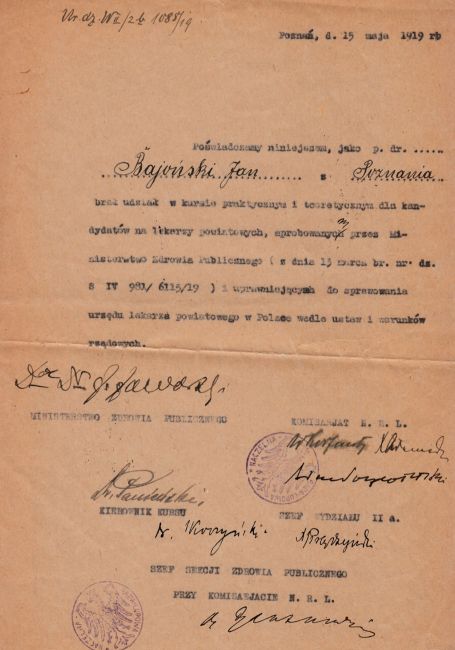 Nr. dz. W II/2 b 1085/19
Poznań, d. 15 maja 1919 r
Poświadczamy niniejszem, jako p. dr. ......
Bajoński Jan z Poznania
brał udział w kursie praktycznym i teoretycznym dla kan-
dydatów na lekarzy powiatowych, aprobowanym przez Mi-
nisterstwo Zdrowia Publicznego ( z dnia 13 marca br. nr. dz.
S IV 981/ 6115/19 ) i uprawniających do sprawowania
urzędu lekarza powiatowego w Polsce wedle ustaw i warunków
rządowych.
MINISTERSTWO ZDROWIA PUBLICZNEGO
KOMISARJAT N. R. L.
W Korfanty
KIEROWNIK KURSU
SZEF WYDZIAŁU II a.
SZEF SEKCJI ZDROWIA PUBLICZNEGO
PRZY KOMISARJACIE N. R. L.
NACZELNA